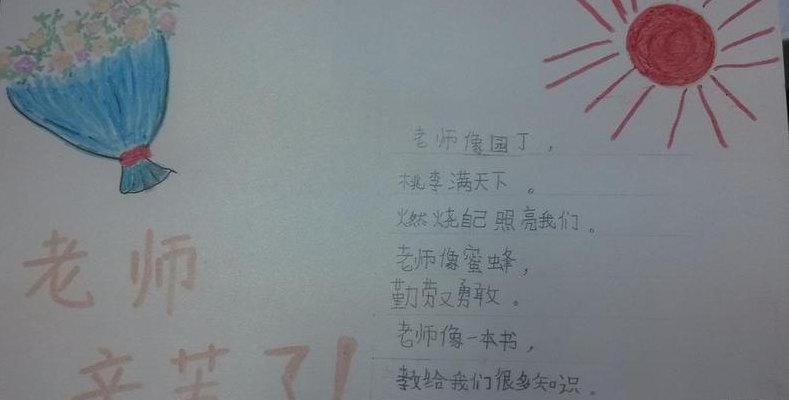 老师
辛苦了!
老师像园丁，
桃李满天下。
燃烧自己照亮我们。
老师像蜜蜂，
勤劳又勇敢。
老师像一本书，
教给我们很多知识。